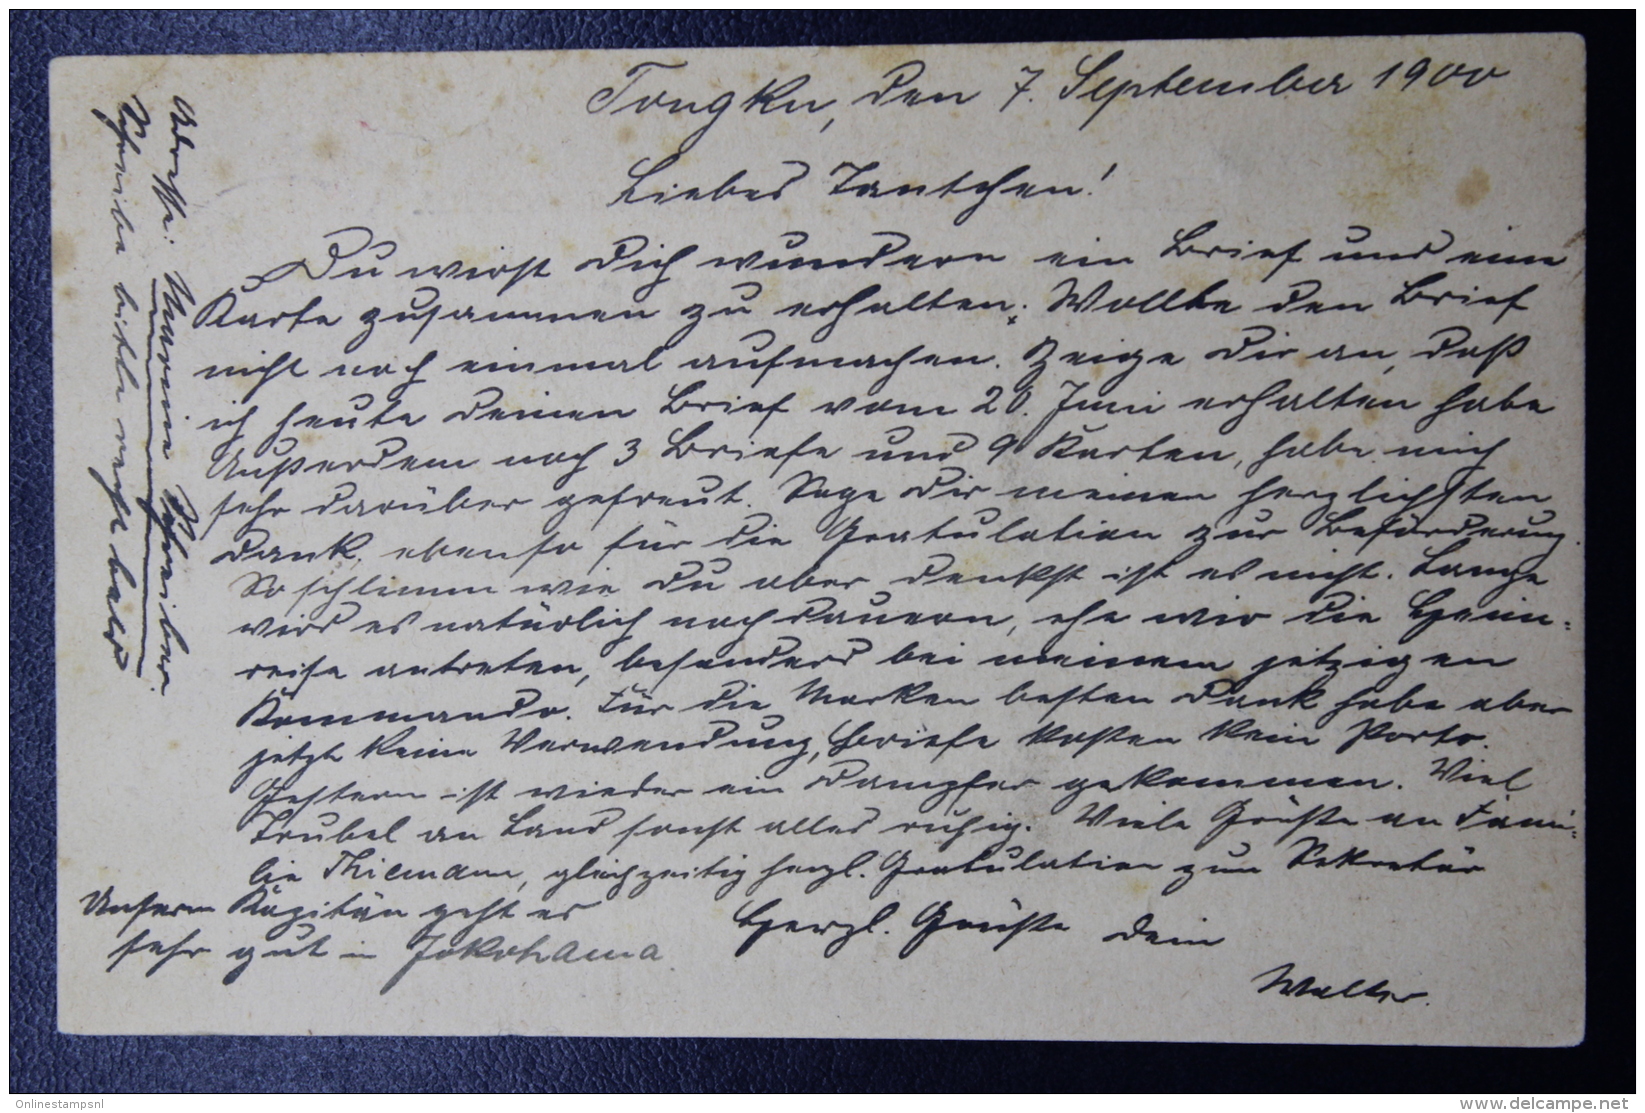 Tongku, den 7. September 1900
Liebes Tantchen!
Du wirst Dich wundern ein Brief und eine
Karte zusammen zu erhalten. Wollte den Brief
nicht noch einmal aufmachen. Zeige Dir an, daß
ich heute deinen Brief vom 20. Juni erhalten habe
Außerdem noch 3 Briefe und 9 Karten, habe mich
sehr darüber gefreut. Sage Dir meinen herzlichsten
Dank, ebenso für die Gratulation zur Beförderung.
So schlimm wie Du aber denkst ist es nicht. Lange
wird es natürlich noch dauern, ehe wir die Heim-
reise antreten, besonders bei meinem jetzigen
Kommando. Für die Marken besten Dank habe aber
jetzt keine Verwendung, Briefe kosten kein Porto.
Gestern ist wieder ein Dampfer gekommen. Viel
Trubel an Land sonst alles ruhig. Viele Grüße an Fami-
lie Thiemann, gleichzeitig herzl. Gratulation zum Sekretär
Unserm Kapitän geht es
sehr gut in Jokohama
Herzl. Grüße Dein
Walter.
Adresse: Marine Schreiber
Schreibe bitte recht bald
Onlinestampsnl
delcampe.net